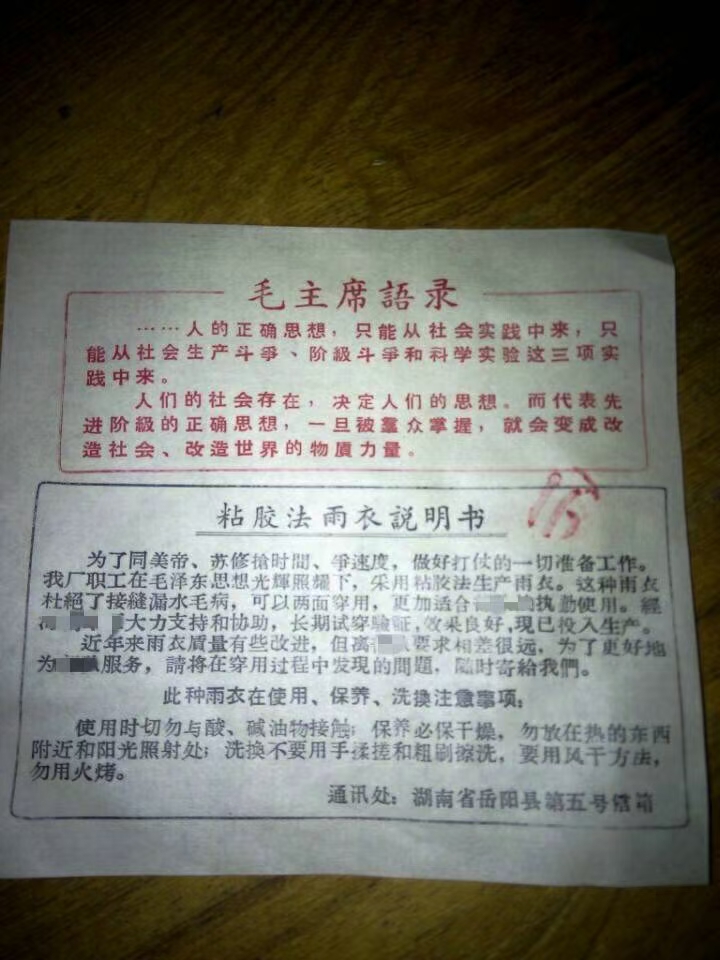 毛主席語录
……人的正确思想，只能从社会实践中来，只
能从社会生产斗爭、阶級斗爭和科学实验这三项实
践中来。
人们的社会存在，决定人们的思想。而代表先
进阶級的正确思想，一旦被羣众掌握，就会变成改
造社会、改造世界的物質力量。
粘胶法雨衣説明书
为了同美帝、苏修搶时間、爭速度，做好打仗的一切准备工作。
我厂职工在毛泽东思想光輝照耀下，采用粘胶法生产雨衣。这种雨衣
杜絕了接縫漏水毛病，可以两面穿用，更加适合执勤使用。經
大力支持和协助，长期试穿驗証，效果良好，现已投入生产。
近年来雨衣质量有些改进，但离要求相差很远，为了更好地
为服务，請将在穿用过程中发现的問題，随时寄給我們。
此种雨衣在使用、保养、洗换注意事项：
使用时切勿与酸、碱油物接触；保养必保干燥，勿放在热的东西
附近和阳光照射处；洗换不要用手揉搓和粗刷擦洗，要用风干方法，
勿用火烤。
通讯处：湖南省岳阳县第五号信箱